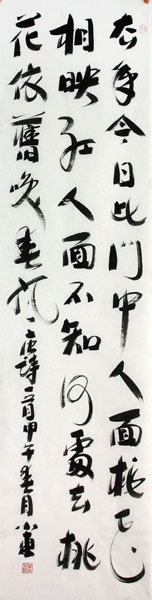 去年今日此門中人面桃花
相映紅人面不知何處去桃
花依舊咲春風唐詩一首甲午春月